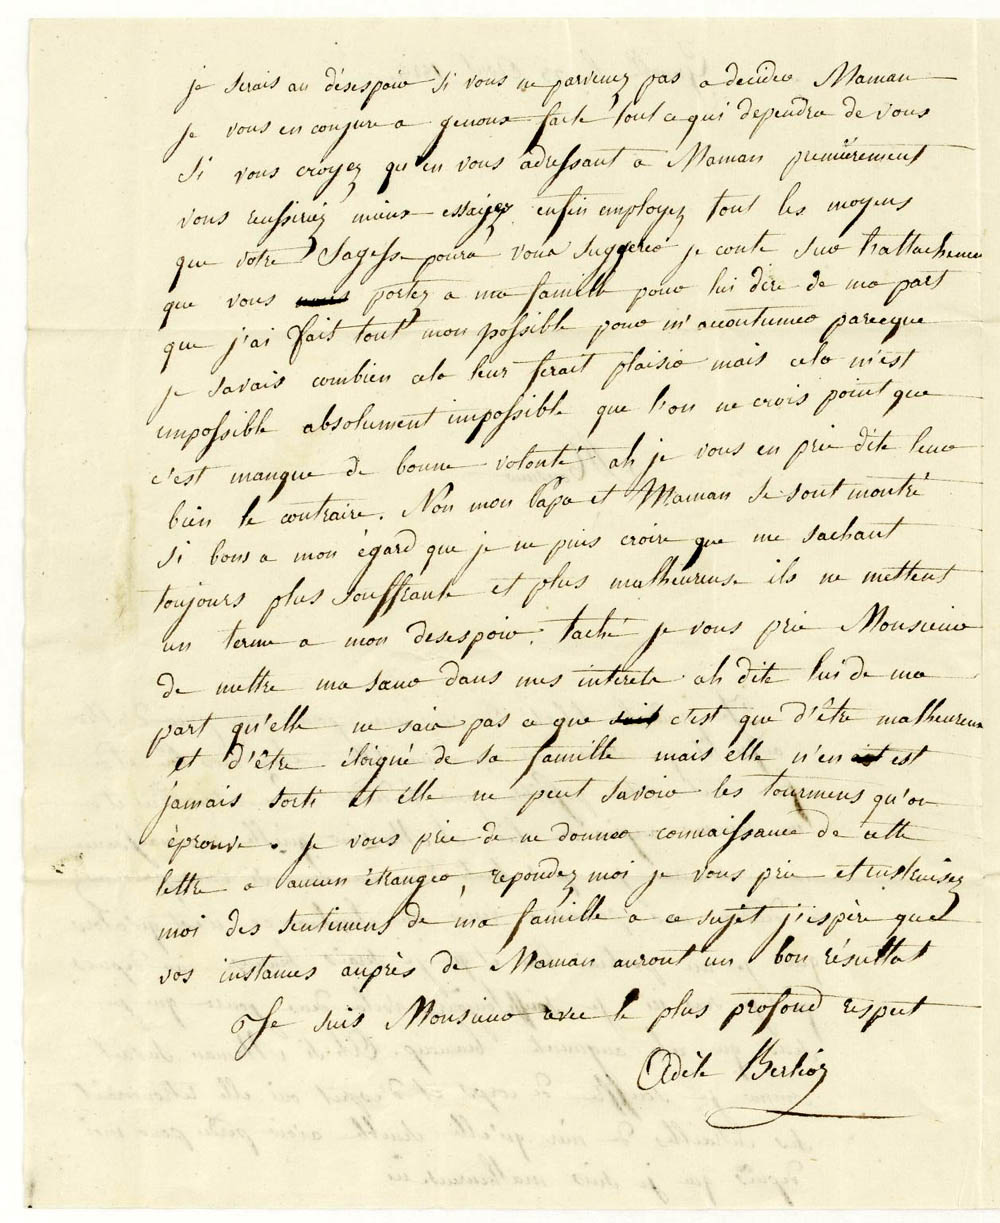 je serais au désespoir si vous ne parvenez pas a decider Maman
je vous en conjure a genoux faite tout ce qui dependra de vous
si vous croyez qu'en vous adressant a Maman premièrement
vous reussiriez mieux essayez enfin employez tout les moyens
que votre sagesse poura vous suggerer je conte sur l'attachement
que vous nous portez a ma famille pour lui dire de ma part
que j'ai fait tout mon possible pour m'acoutumer parceque
je savais combien cela leur ferait plaisir mais cela m'est
impossible absolument impossible que l'on ne crois point que
c'est manque de bonne volonté ah je vous en prie dite leur
bien le contraire. Non mon Papa et Maman se sont montré
si bons a mon égard que je ne puis croire que me sachant
toujours plus souffrante et plus malheureuse ils ne mettent
un terme a mon desespoir. taché je vous prie Monsieur
de mettre ma sœur dans mes interets ah dite lui de ma
part qu'elle ne sair pas ce que c'est que d'être malheureux
et d'être éloigné de sa famille mais elle n'en est
jamais sorti et elle ne peut savoir les tourmens qu'on
éprouve. je vous prie de ne donner connaissance de cette
lettre a aucun étranger, repondez moi je vous prie et instruisez
moi des sentimens de ma famille a ce sujet j'éspère que
vos instances auprès de Maman auront un bon résultat
Je suis Monsieur avec le plus profond respect
Adèle Berlioz